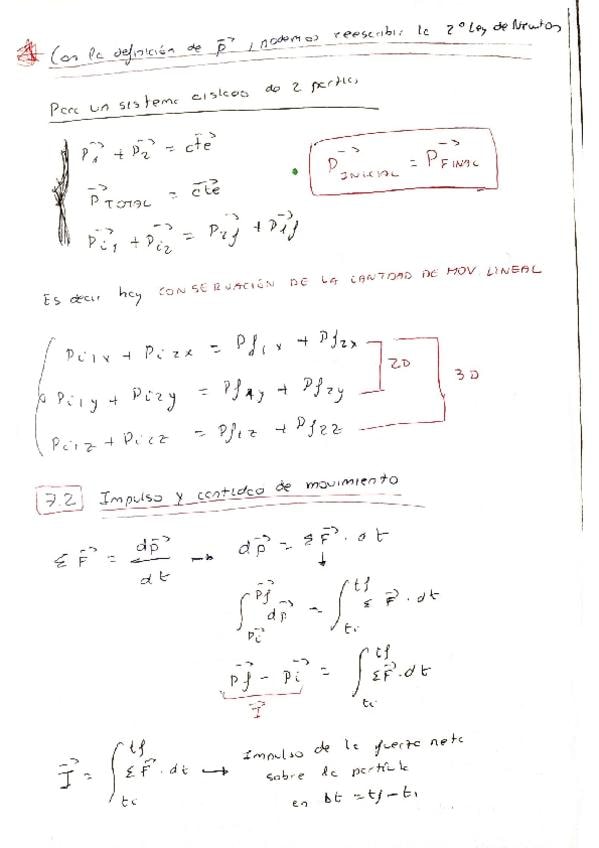 Con la definición de p⃗, podemos reescribir la 2º Ley de Newton
Para un sistema aislado de 2 partic.
p₁⃗ + p₂⃗ = cte⃗
p⃗ TOTAL = cte⃗
P⃗ INICIAL = P⃗ FINAL
p⃗i1 + p⃗i2 = p⃗2f + p⃗1f
Es decir hay CONSERVACIÓN DE LA CANTIDAD DE MOV. LINEAL
Pi1x + Pi2x = Pf1x + Pf2x
2D
3D
Pi1y + Pi2y = Pf1y + Pf2y
Pi1z + Pi2z = Pf1z + Pf2z
7.2 Impulso y cantidad de movimiento
Σ F⃗ = dp⃗/dt → dp⃗ = Σ F⃗ · dt
∫p⃗i^p⃗f dp⃗ = ∫ti^tf Σ F⃗ · dt
p⃗f − p⃗i = ∫ti^tf Σ F⃗ · dt
I⃗
I⃗ = ∫ti^tf Σ F⃗ · dt → Impulso de la fuerza neta
sobre la partícula
en Δt = tf − ti